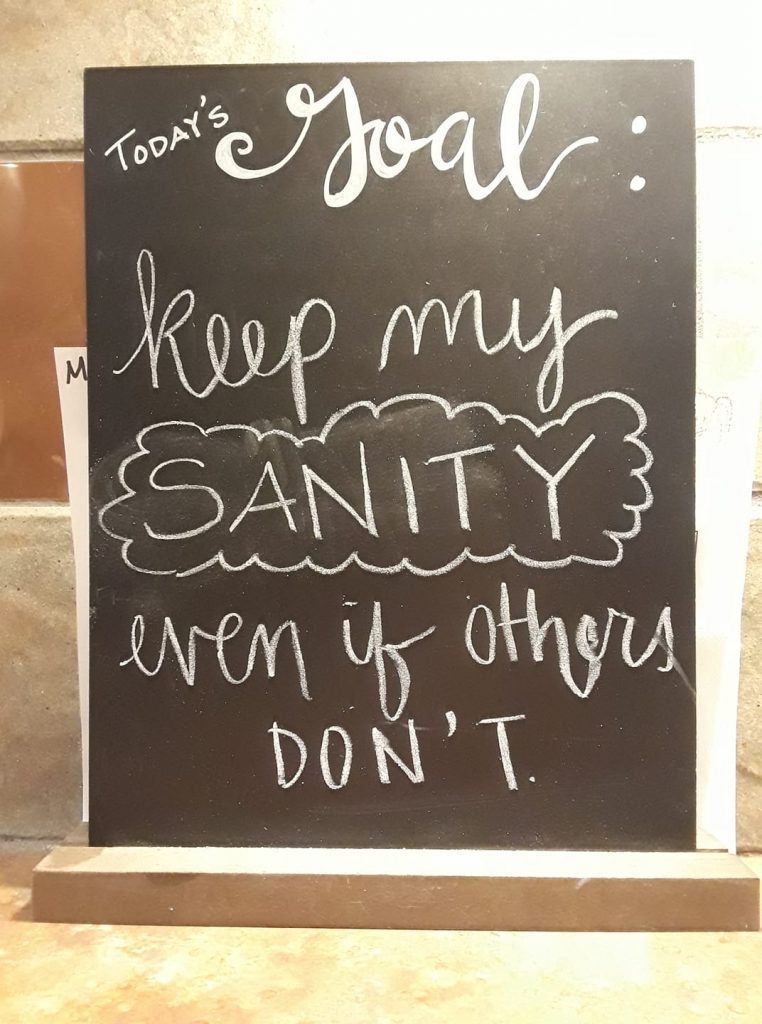 TODAY'S Goal:
keep my
SANITY
even if others
DON'T.
M